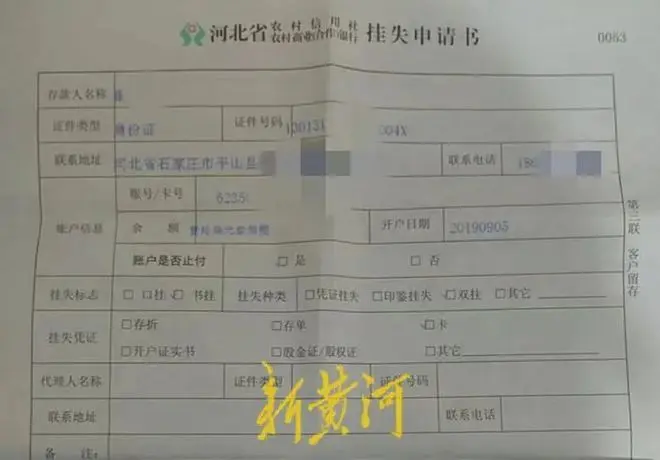 河北省农村信用社农村商业(合作)银行挂失申请书 0063
存款人名称
证件类型 身份证 证件号码 130131 004X
联系地址 河北省石家庄市平山县 联系电话 186
账户信息 账号/卡号 6235
余额 开户日期 20190905
账户是否止付 □是 □否
挂失标志 □口挂 ☑书挂 挂失种类 □凭证挂失 □印鉴挂失 ☑双挂 □其它
挂失凭证 □存折 □存单 ☑卡
□开户证实书 □股金证/股权证 □其它
代理人名称 证件类型 证件号码
联系地址 联系电话
备注:
第三联 客户留存
新黄河